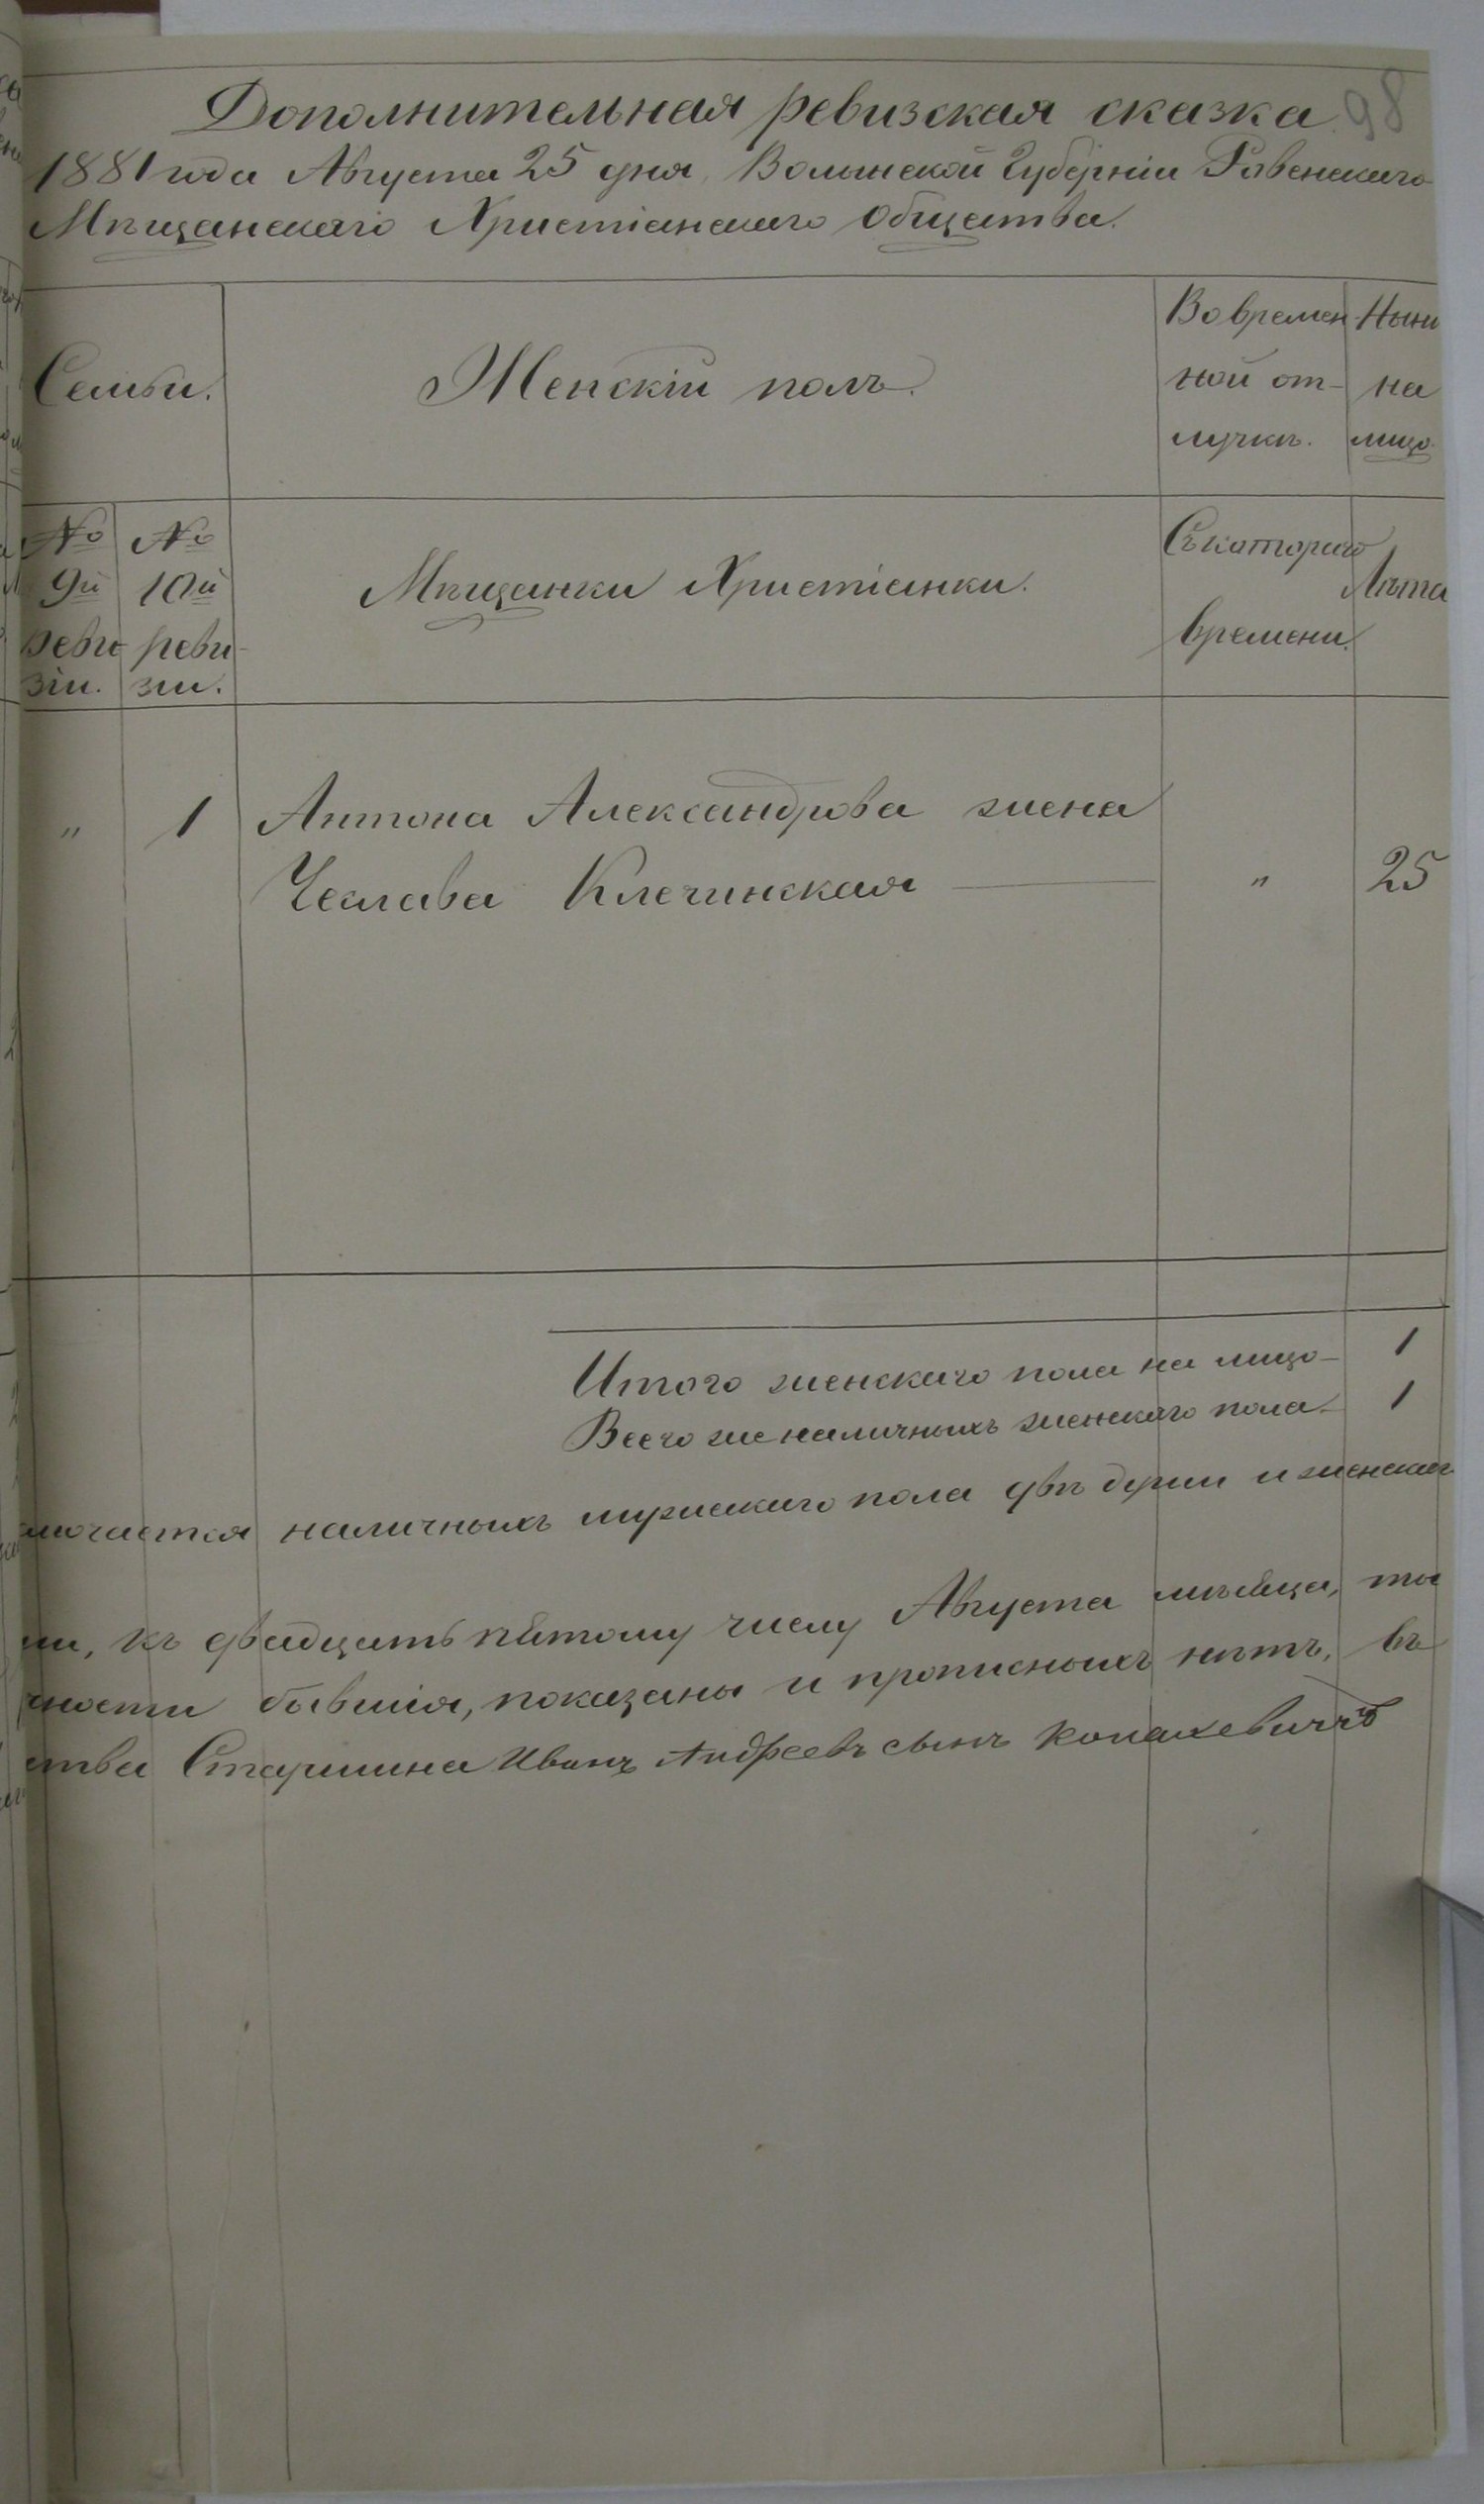 Дополнительная ревизская сказка. 98
1881 года Августа 25 дня, Волынской Губерніи Ровенскаго
Мѣщанскаго Христіанскаго Общества.
Семьи.
Женскій полъ.
Во времен-
ной от-
лучкѣ.
Нынѣ
на
лицо.
№ 9й реви-
зіи.
№ 10й реви-
зіи.
Мѣщанки Христіанки.
Съ котораго
времени.
Лѣта
" 1 Антона Александрова жена
Чеслава Клечинская " 25
Итого женскаго пола на лицо 1
Всего же наличныхъ женскаго пола 1
лючается наличныхъ мужескаго пола двѣ души и женскаг
ии, къ двадцать пятому числу Августа мѣсяца, ты
ности бывшія, показаны и прописныхъ нѣтъ, въ
ства Старшина Иванъ Андреевъ сынъ